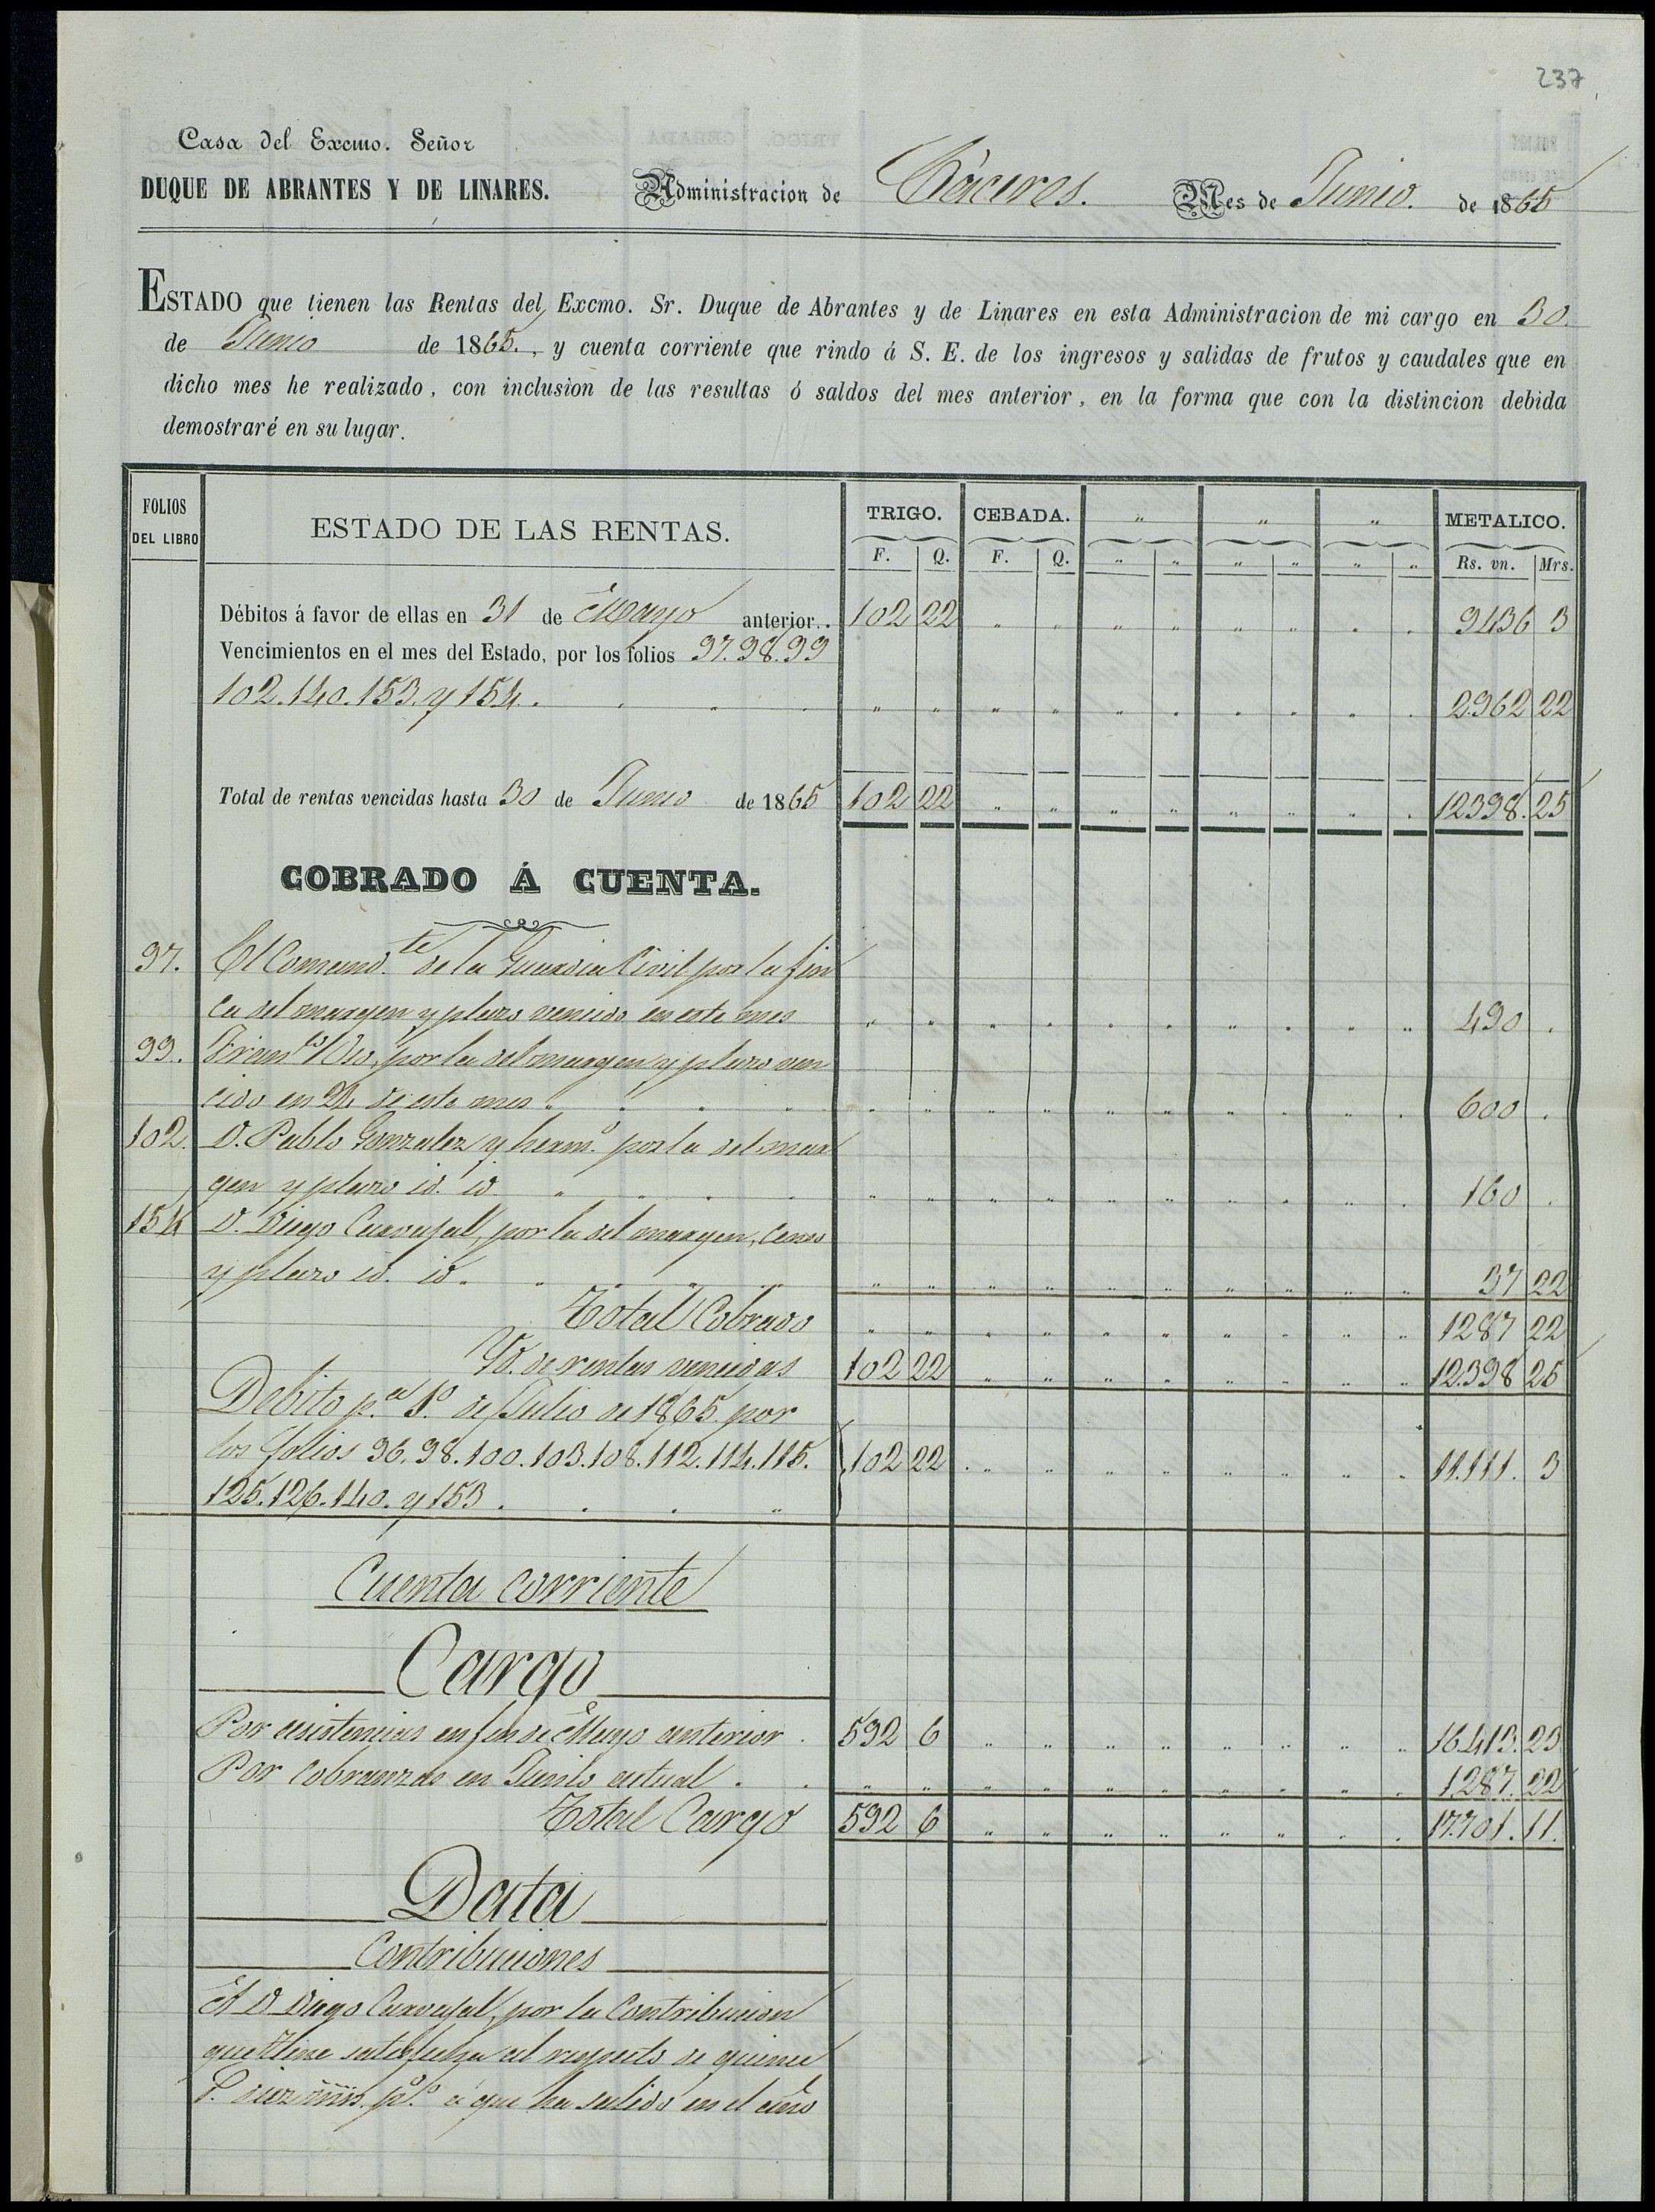 237
Casa del Excmo. Señor
DUQUE DE ABRANTES Y DE LINARES. Administracion de Cáceres. Mes de Junio. de 1865
ESTADO que tienen las Rentas del Excmo. Sr. Duque de Abrantes y de Linares en esta Administracion de mi cargo en 30.
de Junio de 1865., y cuenta corriente que rindo á S. E. de los ingresos y salidas de frutos y caudales que en
dicho mes he realizado, con inclusion de las resultas ó saldos del mes anterior, en la forma que con la distincion debida
demostraré en su lugar.
FOLIOS DEL LIBRO ESTADO DE LAS RENTAS. TRIGO. CEBADA. " " " METALICO.
F. Q. F. Q. " " " " " " Rs. vn. Mrs.
Débitos á favor de ellas en 31 de Mayo anterior.. 102 22 " " " " " " " " 9436 3
Vencimientos en el mes del Estado, por los folios 97.98.99
102.140.153. y 154. " " " " " " " " " " 2962 22
Total de rentas vencidas hasta 30 de Junio de 1865 102 22 " " " " " " " " 12398. 25
COBRADO Á CUENTA.
97. El Comand.te de la Guardia Civil por la fin
ca del margen y plazo vencido en este mes " " " " " " " " " " 490 .
99. Fran.co por la del margen y plazo ven
cido en 24 de este mes " " " " " " " " " " 600 .
102. D. Pablo Gonzalez y herm.o por la del mar
gen y plazo id. id. " " " " " " " " " " 160 .
154 D. Diego Carvajal, por la del margen, censo
y plazo id. id. " " " " " " " " " " 37 22
Total Cobrado " " " " " " " " " " 1287 22
Yd. de rentas vencidas 102 22 " " " " " " " " 12.398 25
Debito p.a 1.o de Julio de 1865 por
los folios 96.98.100.103.108.112.114.115. 102 22 " " " " " " " " 11.111. 3
125.126.140. y 153.
Cuenta corriente
Cargo
Por existencias en fin de Mayo anterior. 592 6 " " " " " " " " 16.413. 23
Por Cobranzas en Junio actual. " " " " " " " " " " 1.287. 22
Total Cargo 592 6 " " " " " " " " 17.701. 11.
Data
Contribuciones
A D. Diego Carvajal, por la Contribucion
que tiene satisfecha al respecto de quince
p.o/o á que ha salido en el año